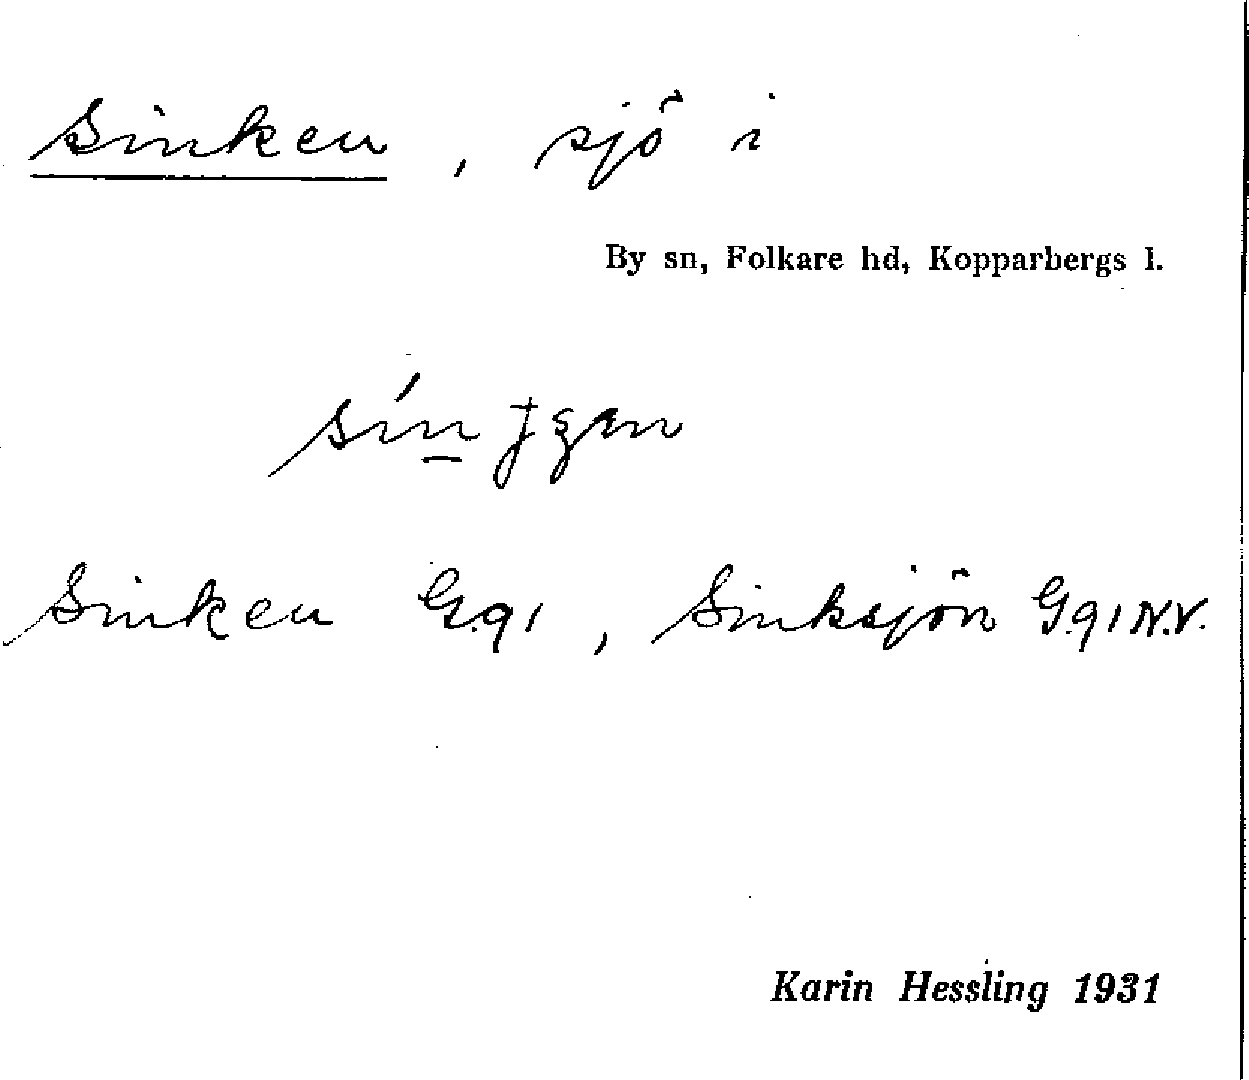 Sinken, sjö i
By sn, Folkare hd, Kopparbergs l.
Sinken G.91, Sinksjön G.91 N.V.
Karin Hessling 1931